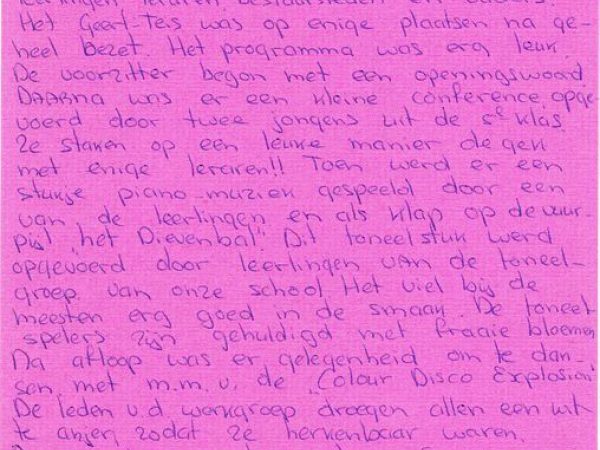 leerlingen leraren bestuursleden en ouders.
Het Geert-Teis was op enige plaatsen na ge-
heel bezet. Het programma was erg leuk.
De voorzitter begon met een openingswoord
DAARNA was er een kleine conference, opge-
voerd door twee jongens uit de 5e klas.
Ze staken op een leuke manier de gek
met enige leraren!! Toen werd er een
stukje piano muziek gespeeld door een
van de leerlingen en als klap op de vuur-
pijl "het Dievenbal". Dit toneelstuk werd
opgevoerd door leerlingen vAn de toneel-
groep van onze school. Het viel bij de
meesten erg goed in de smaak. De toneel
spelers zijn gehuldigd met fraaie bloemen
Na afloop was er gelegenheid om te dan-
sen met m.m.v. de "Colour Disco Explosion"
De leden v.d. werkgroep droegen allen een wit
te anjer, zodat ze herkenbaar waren.